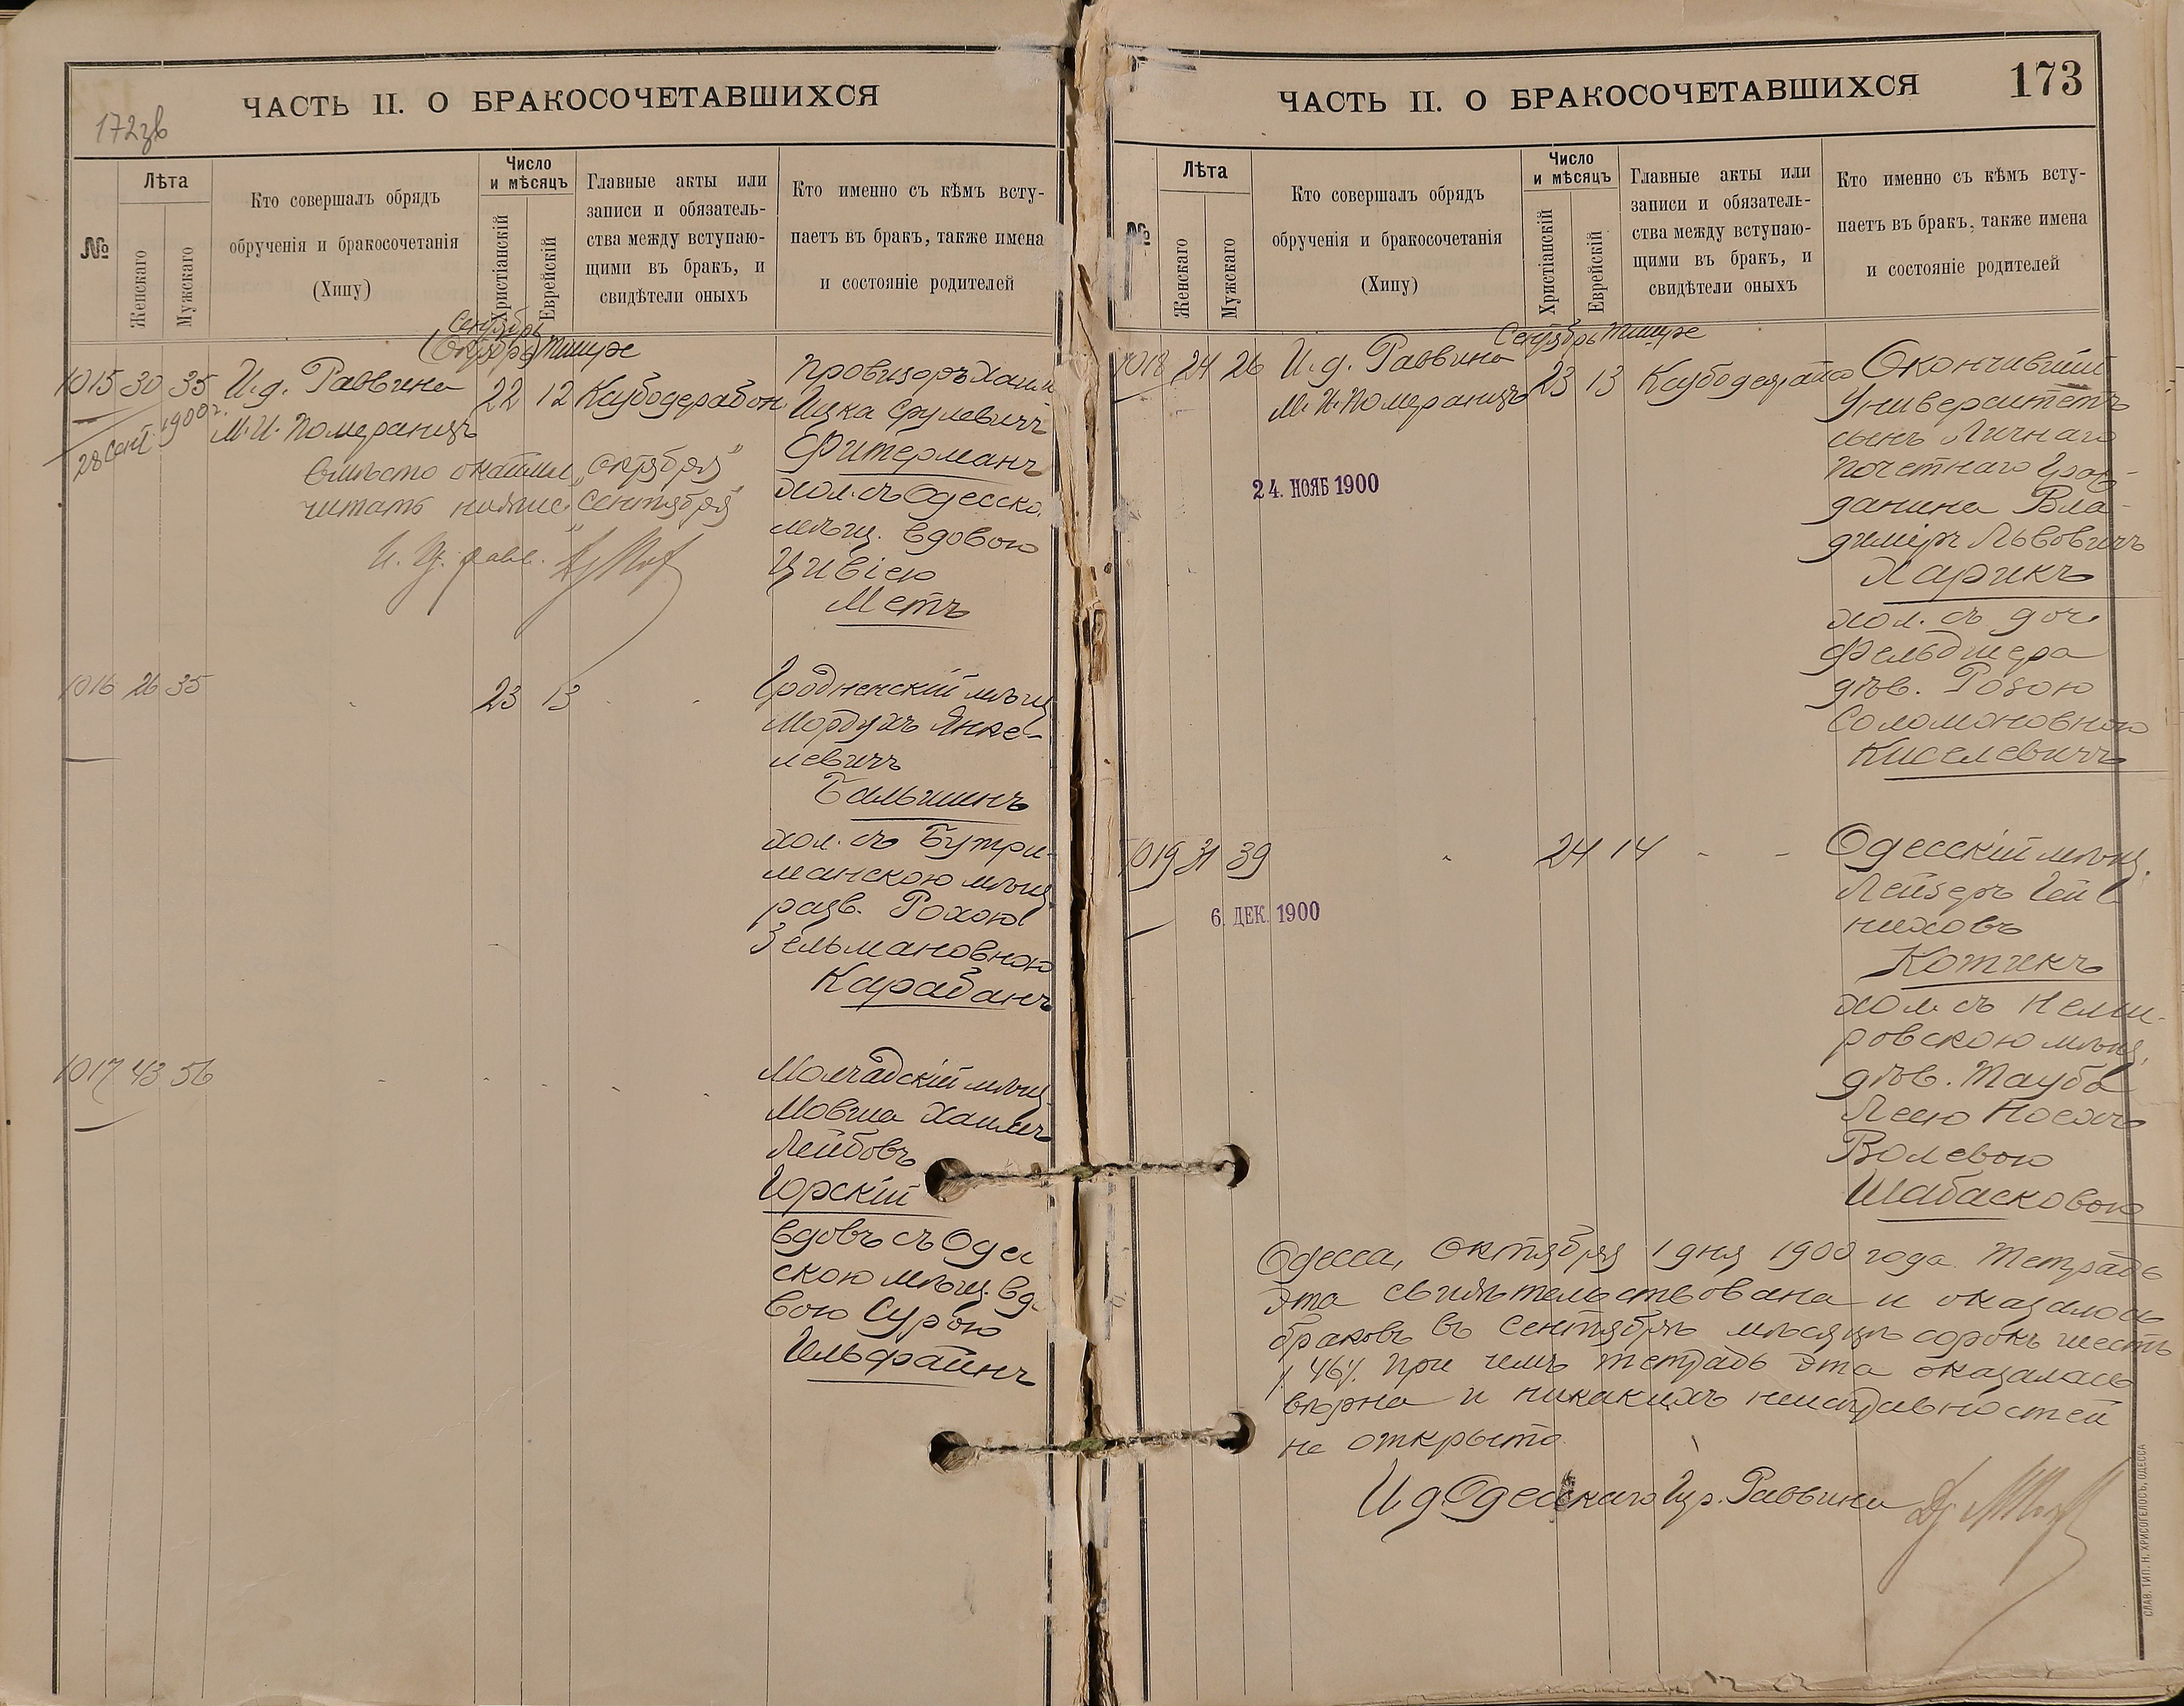 ЧАСТЬ II. О БРАКОСОЧЕТАВШИХСЯ
172зв
№
Лѣта
Женскаго
Мужскаго
Кто совершалъ обрядъ
обрученія и бракосочетанія
(Хипу)
Число
и мѣсяцъ
Христіанскій
Еврейскій
Главные акты или
записи и обязатель-
ства между вступаю-
щими въ бракъ, и
свидѣтели оныхъ
Кто именно съ кѣмъ всту-
паетъ въ бракъ, также имена
и состояніе родителей
Сентябрь
(Октябрь) Тишре
1015 30 35 И. д. Раввина 22 12
28 сент 1900 г.
М. И. Померанцъ
вмѣсто „октября"
читать „сентября"
И. д. равв.
Провизоръ Хаим
Ицка Срулевичъ
Фитерманъ
хол. съ Одесско.
мѣщ. вдовою
Цивіею
Метъ
1016 26 35 23 13
Гродненскій мѣщ
Мордухъ Янке-
левичъ
Бальшинъ
хол. съ Бутри-
манскою мѣщ
разв. Рохою
Зельмановною
Карабанъ
1017 43 56
Молчадскій мѣщ.
Мовша Хаимъ
Лейбовъ
Горскій
вдовъ съ Одес
скою мѣщ. вд-
вою Сурою
Гельфаинъ
ЧАСТЬ II. О БРАКОСОЧЕТАВШИХСЯ
173
№
Лѣта
Женскаго
Мужскаго
Кто совершалъ обрядъ
обрученія и бракосочетанія
(Хипу)
Число
и мѣсяцъ
Христіанскій
Еврейскій
Главные акты или
записи и обязатель-
ства между вступаю-
щими въ бракъ, и
свидѣтели оныхъ
Кто именно съ кѣмъ всту-
паетъ въ бракъ, также имена
и состояніе родителей
Сентябрь Тишре
1018 24 26 И. д. Раввина 23 13
М. И. Померанцъ
24. НОЯБ 1900
Окончившій
Университетъ
сынъ Личнаго
почетнаго Граж-
данина Вла-
димiръ Львовичъ
Ларикъ
хол. съ доч.
Фельдшера
дѣв. Розою
Соломоновною
Киселевичъ
1019 31 39 24 14
6. ДЕК. 1900
Одесскій мѣщ.
Лейзеръ Гей
ниховъ
Котикъ
хол. съ Неми-
ровскою мѣщ.
дѣв. Тауба
Леею Ноехъ
Волевою
Шабасковою
Одесса, Октября 1 дня 1900 года. Тетрадь
эта свидѣтельствована и оказалось
браковъ въ Сентябрѣ мѣсяцѣ сорокъ шесть
/. 46/. При чемъ тетрадь эта оказалась
вѣрна и никакихъ неисправностей
не открыто.
И д Одесскаго Гор. Раввина
СЛАВ. ТИП. Н. ХРИСОГЕЛОСЪ, ОДЕССА